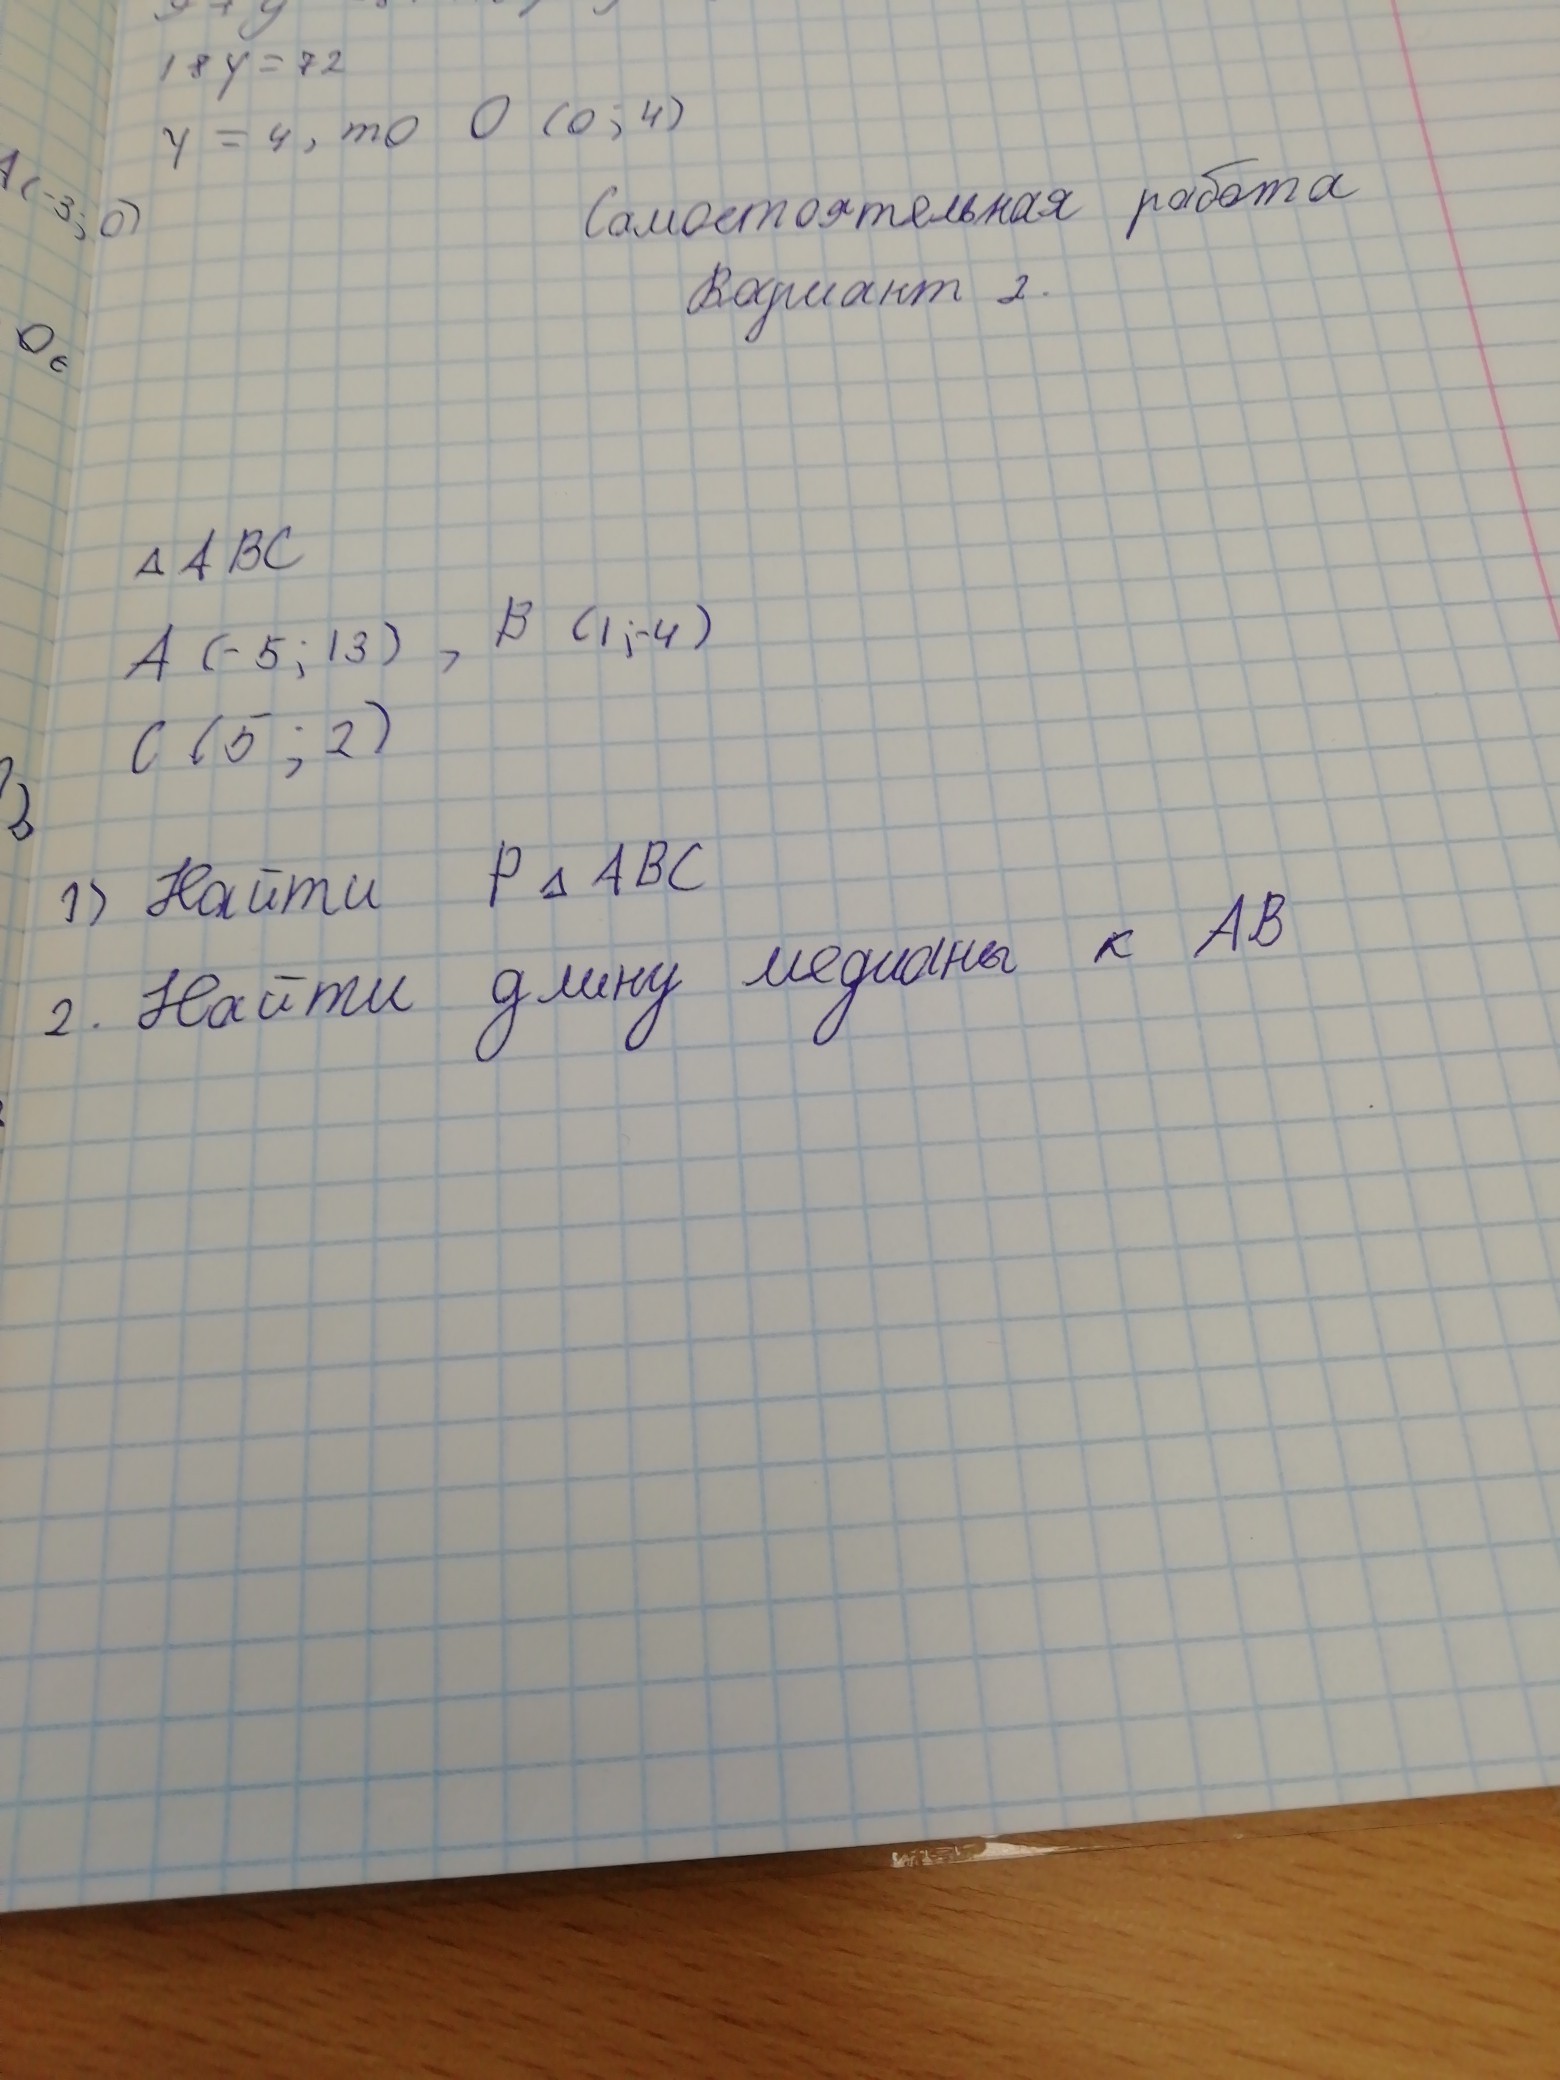 18y=72
y = 4, то O (0; 4)
A(-3; 0)
Самостоятельная работа
Вариант 2.
△ ABC
A (-5; 13) , B (1; -4)
C (5 ; 2)
1) Найти P △ ABC
2. Найти длину медианы к AB